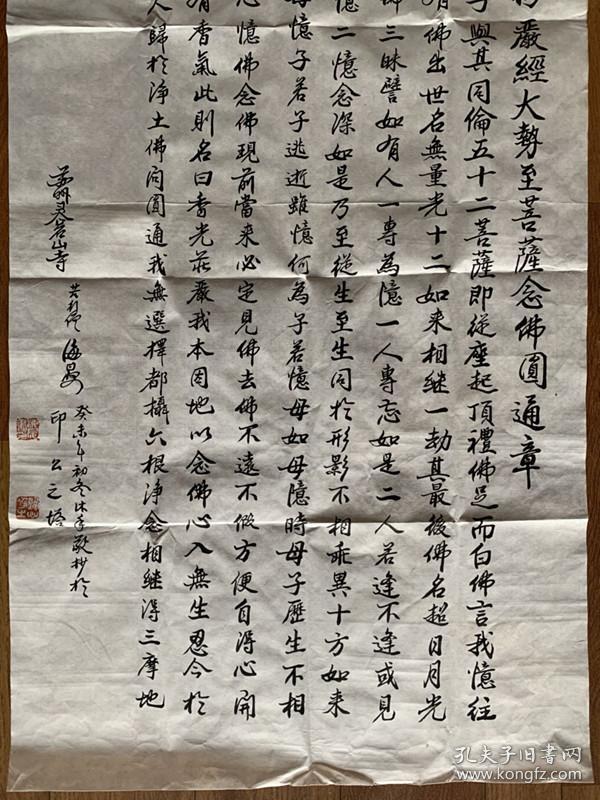 嚴經大勢至菩薩念佛圓通章
子與其同倫五十二菩薩即從座起頂禮佛足而白佛言我憶往
有佛出世名無量光十二如來相繼一劫其最後佛名超日月光
佛三昧譬如有人一專為憶一人專忘如是二人若逢不逢或見
憶二憶念深如是乃至從生至生同於形影不相乖異十方如來
母憶子若子逃逝雖憶何為子若憶母如母憶時母子歷生不相
心憶佛念佛現前當來必定見佛去佛不遠不假方便自得心開
有香氣此則名曰香光莊嚴我本因地以念佛心入無生忍今於
人歸於淨土佛問圓通我無選擇都攝六根淨念相繼得三摩地
癸未年初冬沐手敬抄於
印公之塔
灵岩山寺 苦行僧 海晏
孔夫子旧书网
www.kongfz.com